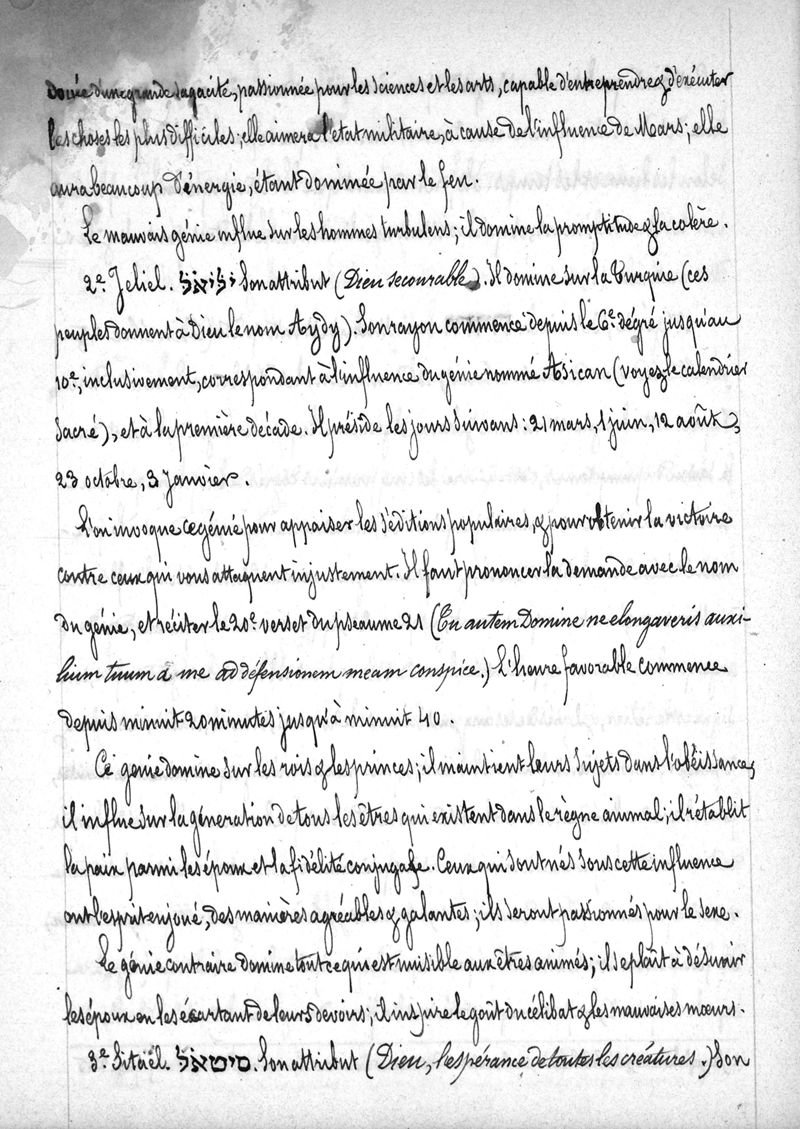 douée d'une grande sagacité, passionnée pour les sciences et les arts, capable d'entreprendre & d'exécuter
les choses les plus difficiles; elle aimera l'état militaire, à cause de l'influence de Mars; elle
aura beaucoup d'énergie, étant dominée par le feu.
Le mauvais génie influe sur les hommes turbulens; il domine la promptitude & la colère.
2e. Jeliel. יליאל Son attribut (Dieu secourable). Il domine sur la Turquie (ces
peuples donnent à Dieu le nom Aydy). Son rayon commence depuis le 6e. dégré jusqu'au
10e, inclusivement, correspondant à l'influence du génie nommé Asican (voyez le calendrier
Sacré), et à la première décade. Il préside les jours suivans: 21 mars, 1 juin, 12 août,
23 octobre, 3 Janvier.
L'on invoque ce génie pour appaiser les séditions populaires, & pour obtenir la victoire
contre ceux qui vous attaquent injustement. Il faut prononcer la demande avec le nom
du génie, et réciter le 20e. verset du pseaume 21 (Tu autem Domine ne elongaveris auxi-
lium tuum à me ad défensionem meam conspice.) L'heure favorable commence
depuis minuit 20 minutes jusqu'à minuit 40.
Ce génie domine sur les rois & les princes; il maintient leurs sujets dans l'obéissance;
il influe sur la géneration de tous les êtres qui existent dans le règne animal; il rétablit
la paix parmi les époux et la fidélité conjugale. Ceux qui sont nés sous cette influence
ont l'esprit enjoué, des manières agréables & galantes; ils seront passionnés pour le sexe.
Le génie contraire domine tout ce qui est nuisible aux êtres animés; il se plaît à désunir
les époux en les écartant de leurs devoirs; il inspire le goût du célibat & les mauvaises mœurs.
3e. Sitaël. סיטאל. Son attribut (Dieu, l'espérance de toutes les créatures.) Son